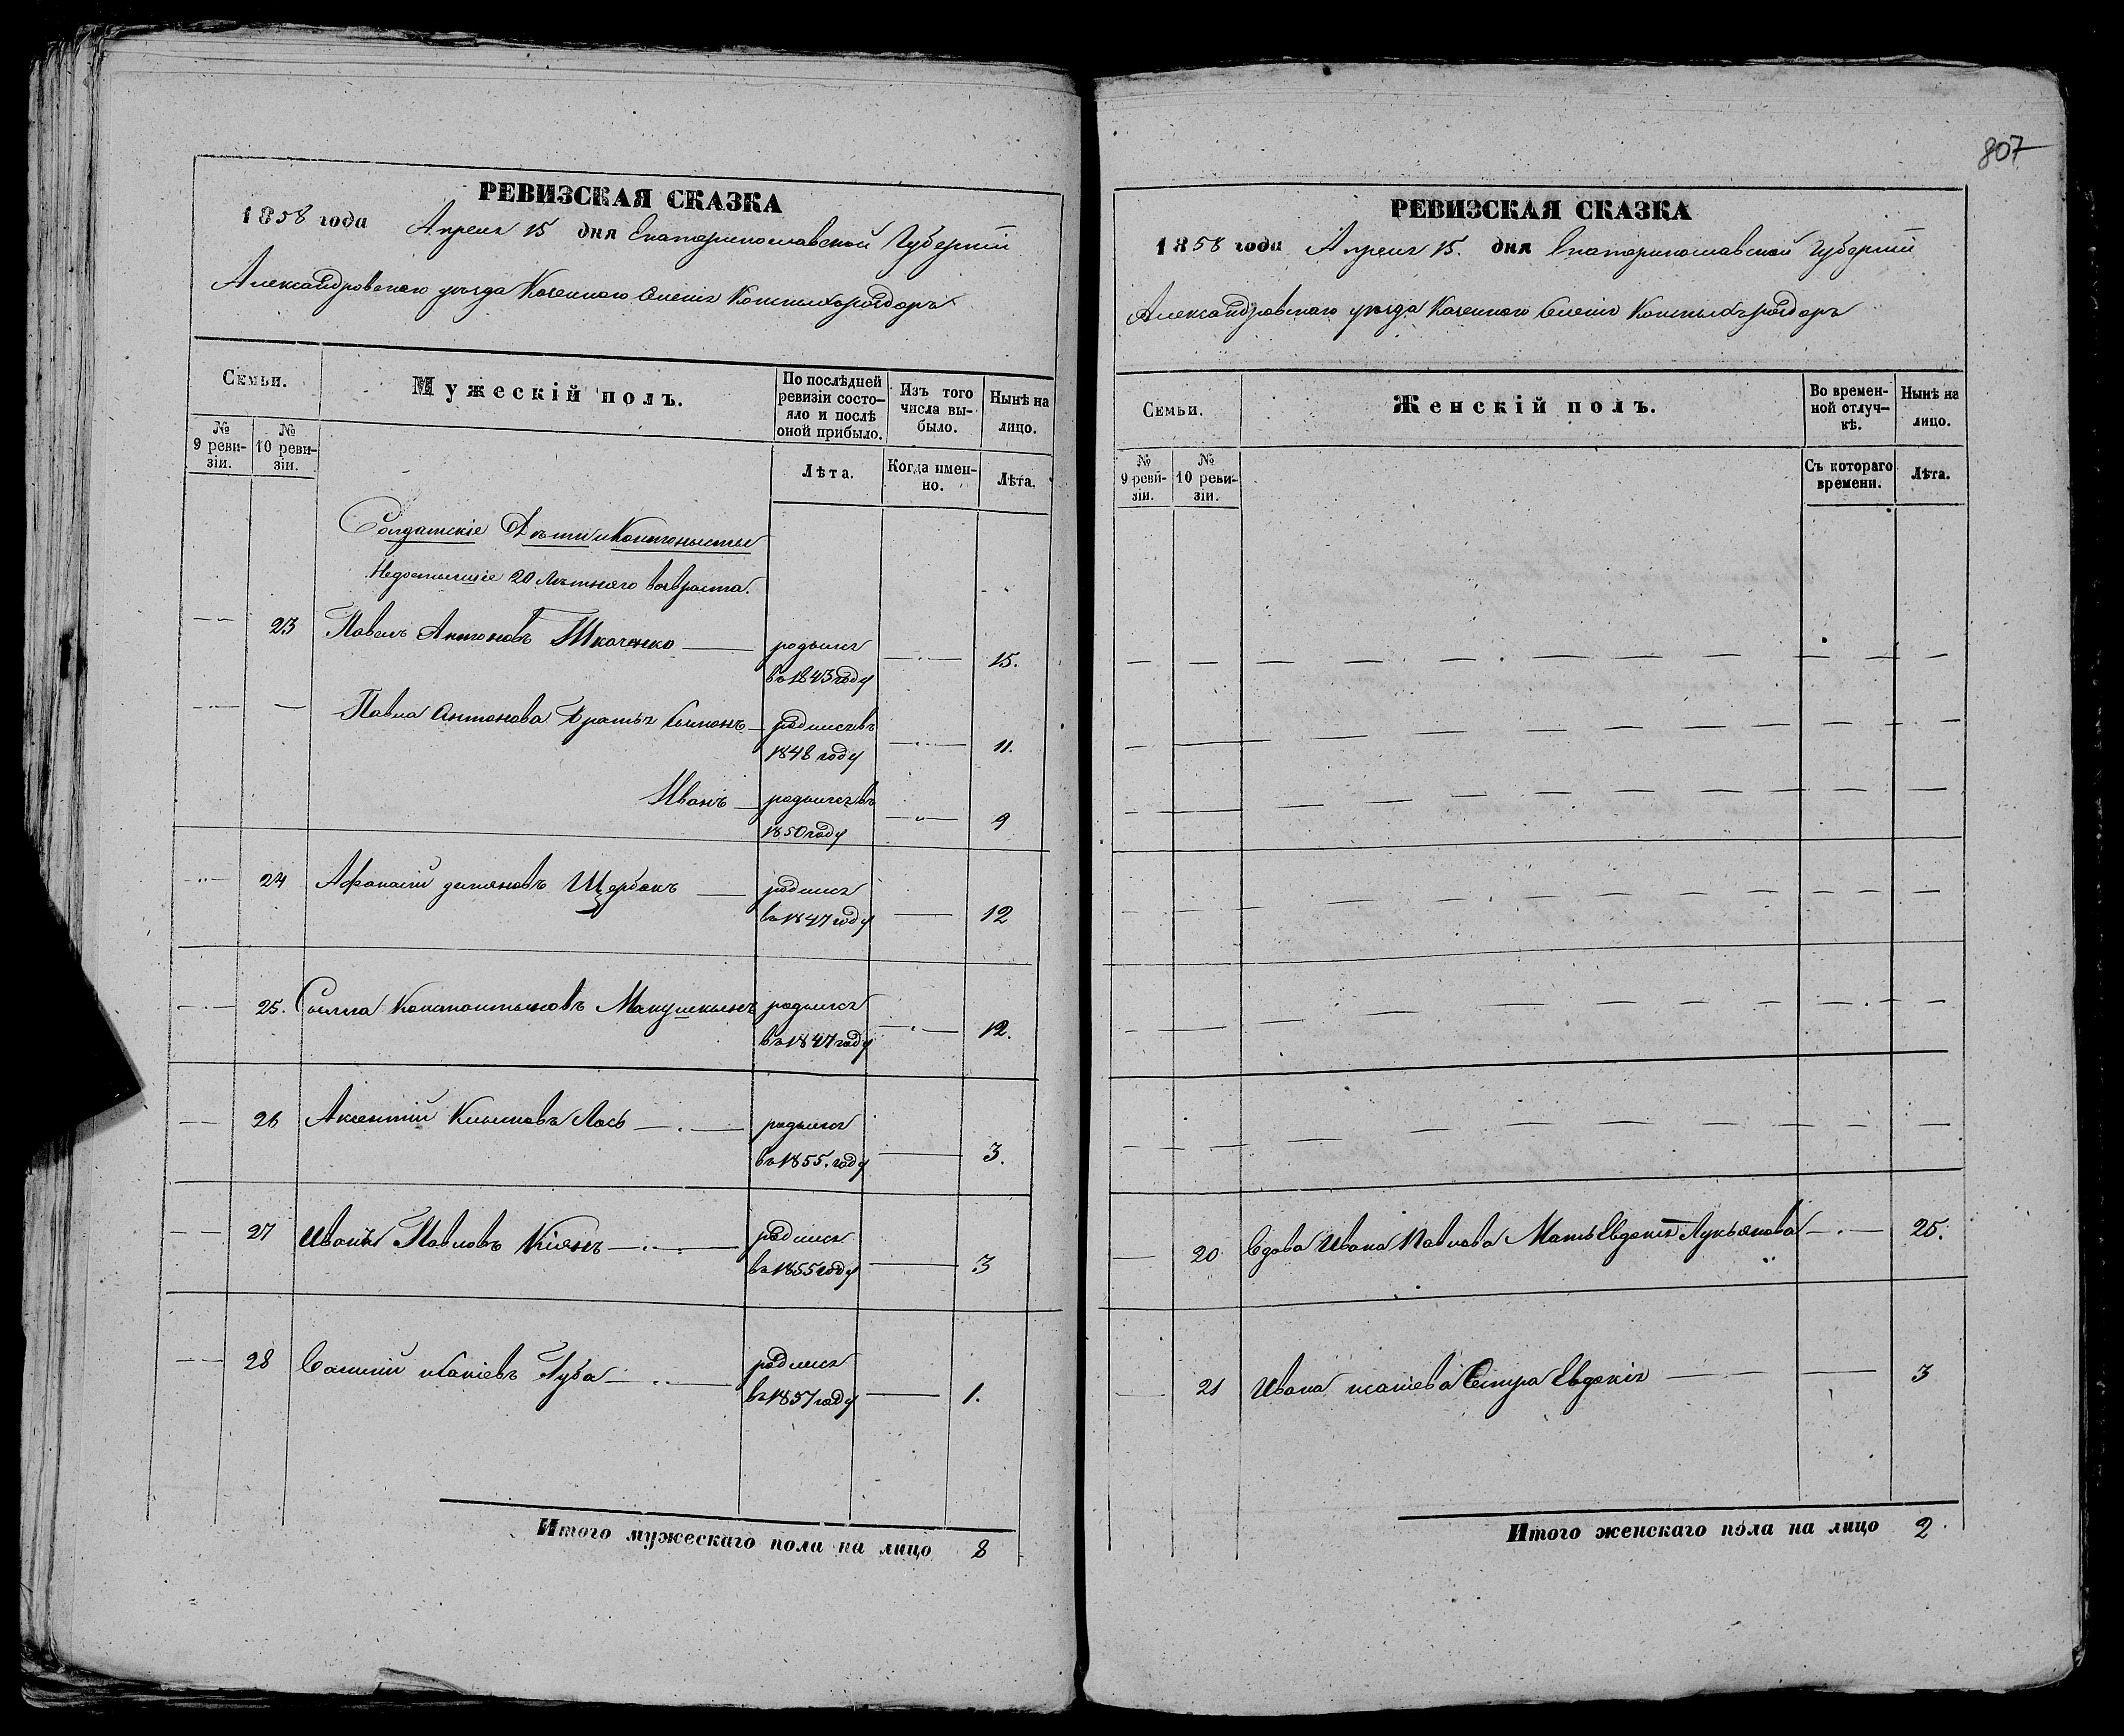 807
РЕВИЗСКАЯ СКАЗКА
1858 года Апреля 15 дня Екатеринославской Губерніи
Александровского уезда Казенного Селенія
Семьи.
Мужескій полъ.
По послѣдней ревизіи состояло и послѣ оной прибыло.
Изъ того числа выбыло.
Нынѣ на лицо.
№ 9 ревизіи.
№ 10 ревизіи.
Лѣта.
Когда именно.
Лѣта.
Солдатскіе Дѣти и Кантонисты
Недостигшіе 20 Лѣтнего возвраста.
23 Павелъ Антоновъ Ткаченко — родился
въ 1843 году 15.
Павла Антонова Братья Симонъ — родился въ
1848 году 11.
Иванъ — родился въ
1850 году 9
24 Афанасій демяновъ Щербакъ — родился
въ 1847 году 12
25. Савва Константиновъ Макушкинъ родился
въ 1847 году 12.
26 Аксентій Климовъ Лось — родился
въ 1855. году 3.
27 Иванъ Павловъ Кіянъ — родился
въ 1855 году 3
28 Губа — родился
въ 1857 году 1.
Итого мужескаго пола на лицо 8
РЕВИЗСКАЯ СКАЗКА
1858 года Апреля 15. дня Екатеринославской Губерніи
Александровского уезда Казенного Селенія
Семьи.
Женскій полъ.
Во временной отлучкѣ.
Нынѣ на лицо.
№ 9 ревизіи.
№ 10 ревизіи.
Съ котораго времени.
Лѣта.
20 Вдова Ивана Павлова Мать Евдокія Лукьянова — 25.
21 Ивана Сестра Евдокія — 3
Итого женскаго пола на лицо 2